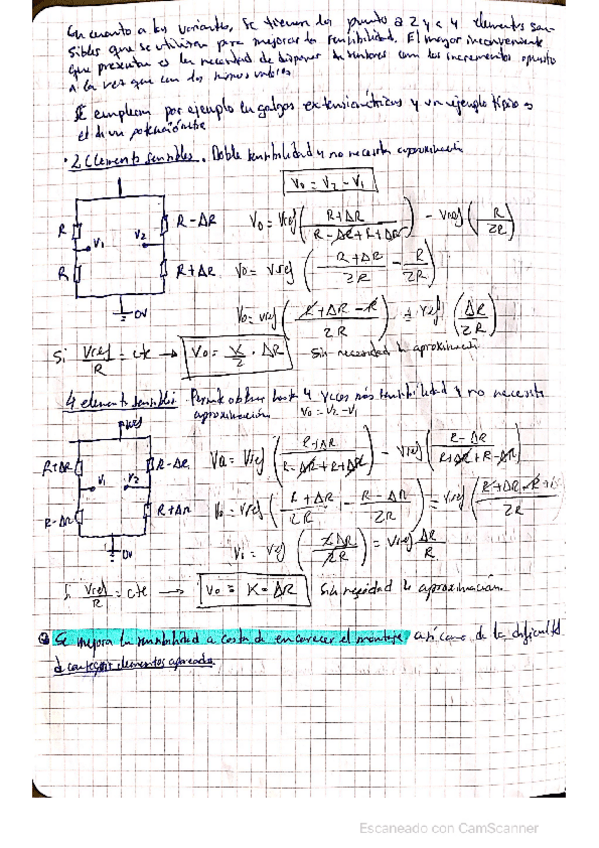 En cuanto a las variantes, se tienen los puente a 2 y a 4 elementos sen-
sibles que se utilizan para mejorar la sensibilidad. El mayor inconveniente
que presentan es la necesidad de disponer de sensores con los incrementos opuesto
a la vez que con los mismos valores.
Se emplean por ejemplo en galgas extensiométricas y un ejemplo típico es
el de un potenciómetro
· 2 Elementos sensibles. Doble sensibilidad y no necesita aproximación
Vo = V2 - V1
R
V1
V2
R - ΔR
Vo = Vref ( R+ΔR / R-ΔR+R+ΔR ) - Vref ( R / 2R )
R
R+ΔR
Vo = Vref ( R+ΔR / 2R - R / 2R )
0V
Vo = Vref ( R+ΔR-R / 2R ) = Vref ( ΔR / 2R )
Si Vref / R = cte → Vo = K / 2 · ΔR Sin necesidad de aproximación
4 elementos sensibles. Permite obtener hasta 4 veces más sensibilidad y no necesita
aproximación Vo = V2 - V1
R+ΔR
V1
V2
R-ΔR
Vo = Vref ( R+ΔR / R-ΔR+R+ΔR ) - Vref ( R-ΔR / R+ΔR+R-ΔR )
R-ΔR
R+ΔR
Vo = Vref ( R+ΔR / 2R - R-ΔR / 2R ) = Vref ( R+ΔR-R+ / 2R
0V
= Vref ( 2ΔR / 2R ) = Vref ΔR / R
Si Vref / R = cte → Vo = K = ΔR Sin necesidad de aproximación.
Se mejora la sensibilidad a costa de encarecer el montaje así como de la dificultad
de conseguir elementos apareados.
Escaneado con CamScanner